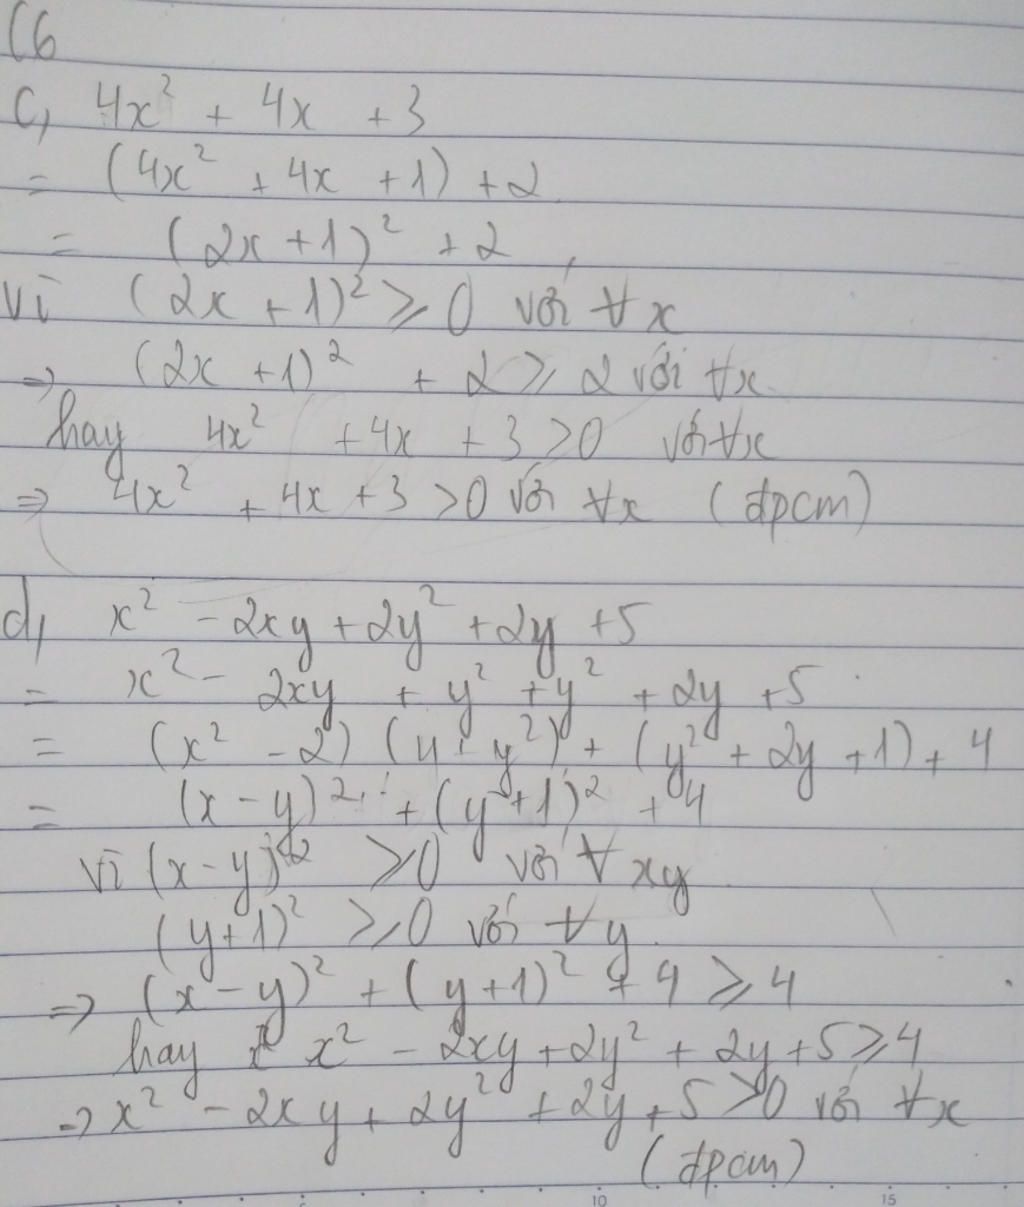 C6
c, 4x² + 4x + 3
= (4x² + 4x + 1) + 2
= (2x + 1)² + 2
Vì (2x + 1)² ≥ 0 với ∀x
=> (2x + 1)² + 2 ≥ 2 với ∀x
hay 4x² + 4x + 3 > 0 với ∀x
=> 4x² + 4x + 3 > 0 với ∀x (đpcm)
d, x² - 2xy + 2y² + 2y + 5
= x² - 2xy + y² + y² + 2y + 5
= (x² - 2) (y + y²) + (y² + 2y + 1) + 4
= (x - y)² + (y + 1)² + 4
Vì (x - y)² ≥ 0 với ∀xy
(y + 1)² ≥ 0 với ∀y
=> (x - y)² + (y + 1)² + 4 ≥ 4
hay x² - 2xy + 2y² + 2y + 5 ≥ 4
=> x² - 2xy + 2y² + 2y + 5 > 0 với ∀x
(đpcm)
10 15